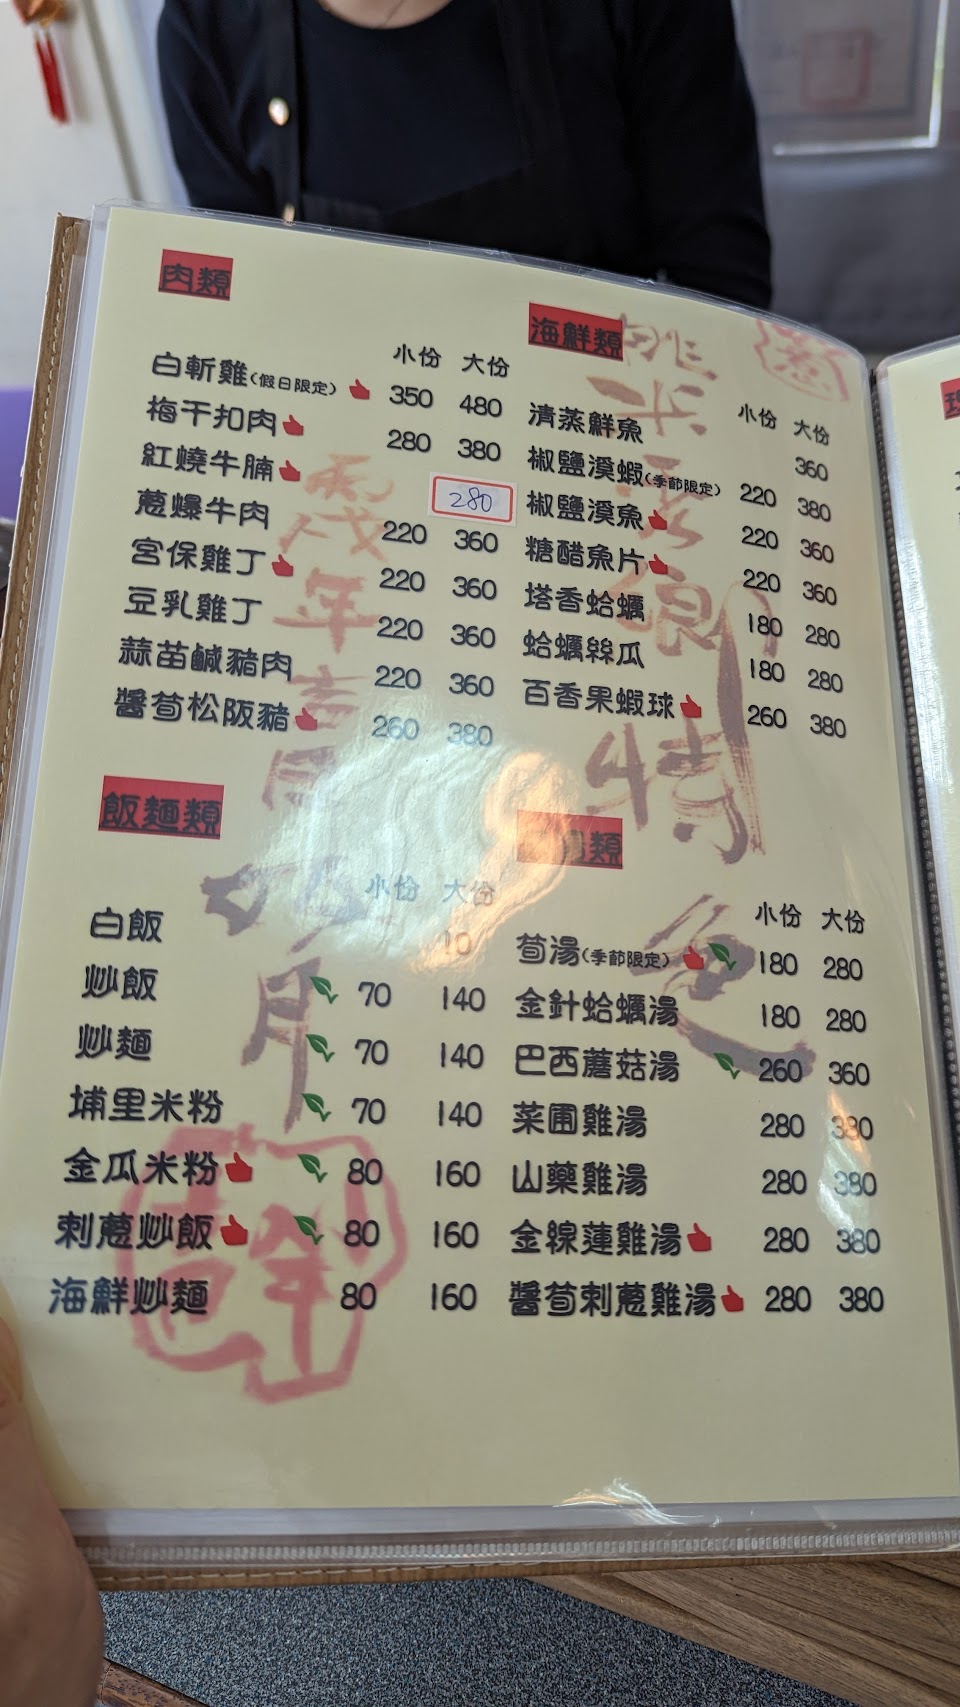 肉類
小份 大份
白斬雞(假日限定) 350 480
梅干扣肉 280 380
紅燒牛腩 280
蔥爆牛肉 220 360
宮保雞丁 220 360
豆乳雞丁 220 360
蒜苗鹹豬肉 220 360
醬荀松阪豬 260 380
海鮮類
小份 大份
清蒸鮮魚 360
椒鹽溪蝦(季節限定) 220 380
椒鹽溪魚 220 360
糖醋魚片 220 360
塔香蛤蠣 180 280
蛤蠣絲瓜 180 280
百香果蝦球 260 380
飯麵類
小份 大份
白飯 10
炒飯 70 140
炒麵 70 140
埔里米粉 70 140
金瓜米粉 80 160
刺蔥炒飯 80 160
海鮮炒麵 80 160
類
小份 大份
荀湯(季節限定) 180 280
金針蛤蠣湯 180 280
巴西蘑菇湯 260 360
菜圃雞湯 280 380
山藥雞湯 280 380
金線蓮雞湯 280 380
醬荀刺蔥雞湯 280 380